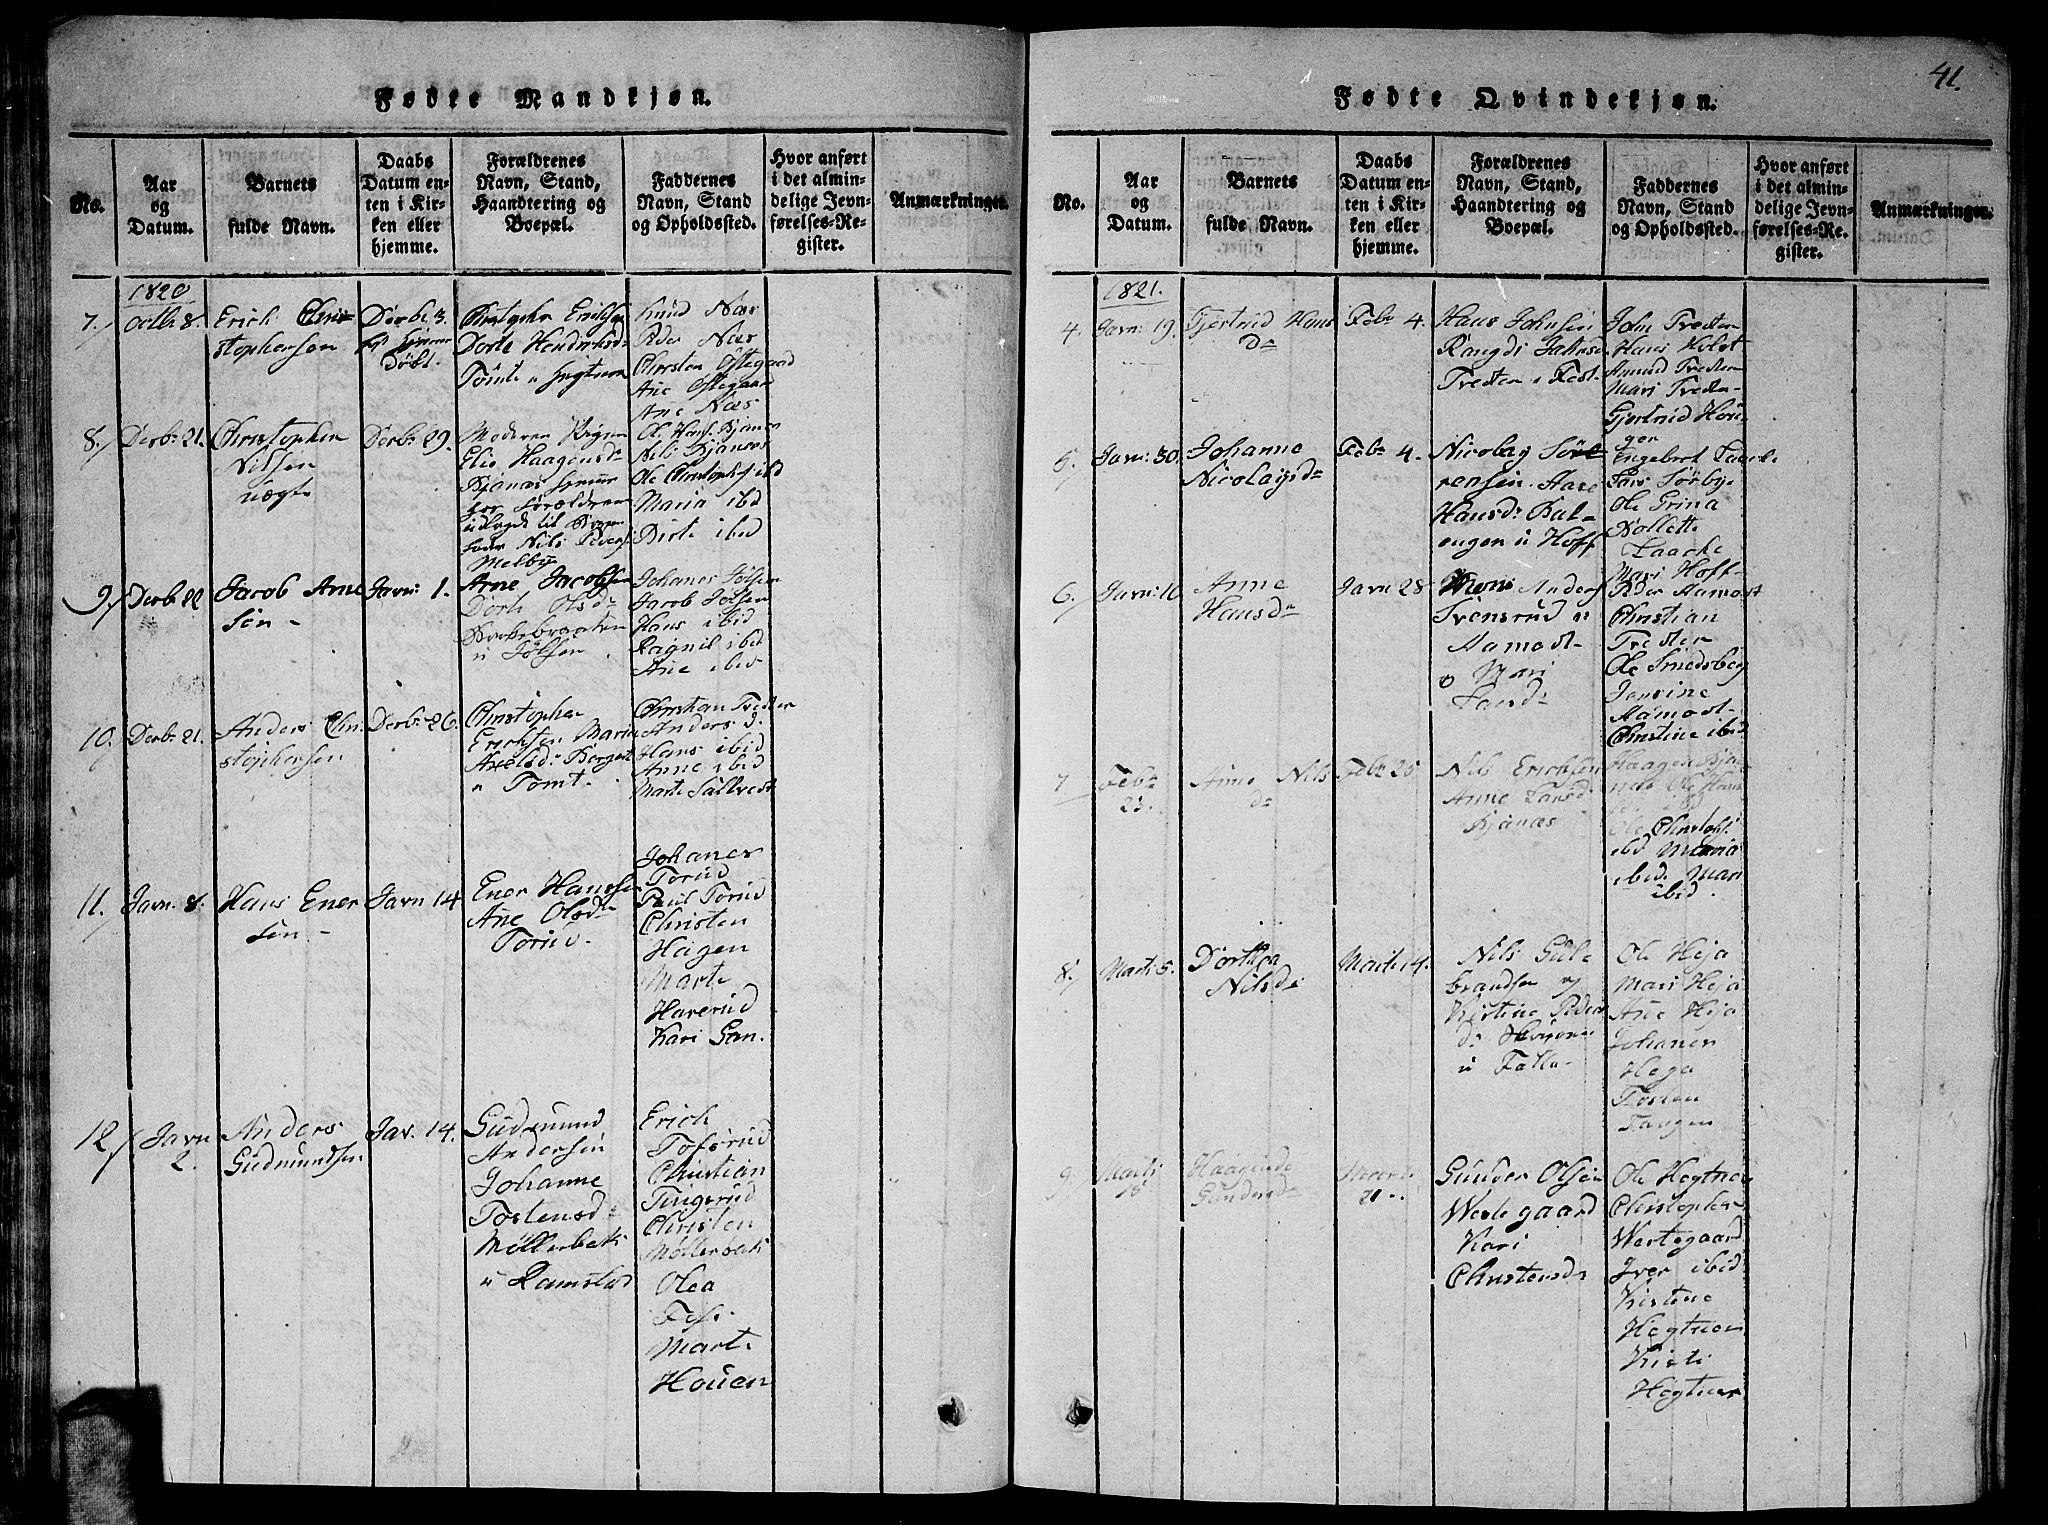 41.
Fødte Mandkjøn.
No.
Aar
og
Datum.
Barnets
fulde Navn.
Daabs
Datum en-
ten i Kir-
ken eller
hjemme.
Forældrenes
Navn, Stand,
Haandtering og
Boepæl.
Faddernes
Navn, Stand
og Opholdssted.
Hvor anført
i det almin-
delige Jevn-
førelses-Re-
gister.
Anmærkninger.
1820
7.
Octb 8.
Erich Chri
stophersen
Decbr 3.
Døbt.
Christopher Erichsen
Dorte Hendrichsd
Tømte
Knud Næs
Peder Næs
Christen Østegaard
Ane Østegaard
Ane Næs
8.
Decbr 21.
Christopher
Nilsen
uægte
Decbr 29.
Moderen Pigen
Elie Haagensdr
Kjanæs hjemme
hos Forældrene
udlagde til Barne
fader Nils Peders
Melbye
Ole Hans. Kjanæs
Nils Kjanæs
Ole Christophs ibid
Maria ibid
Birte ibid
9.
Decbr 22
Jacob Arne
Sen -
Javn: 1.
Arne Jacobsen
Dorte Olsdr
u Jølsen
Johanes Jølsen
Jacob Jølsen
Hans ibid
Ragnil ibid
Ane ibid
10.
Decbr 21.
Anders Chri
stophersen
Decbr 26.
Christopher
Erichsen Maria
Axelsd: Borget
u Tomt.
Christian Tredter
Anders d.
Hans ibid
Anne ibid
Marte Sallvest
11.
Javn. 8.
Hans Ener
Sen -
Javn 14
Ener Hansen
Ane Olsdr
Torud.
Johanes
Torud
Paul Torud
Christen
Hagen
Marte
Haverud
Kari Gan.
12
Javn
2.
Anders
Gudmundsen
Jav. 14.
Gudmund
Andersen
Johanne
Tostensdr
Møllerbak
u Ramstad
Erich
Toførud
Christian
Tingerud
Christen
Møllerbak
Olea
Fossi
Marte
Houen
Fødte Qvindekjøn.
No.
Aar
og
Datum.
Barnets
fulde Navn.
Daabs
Datum en-
ten i Kir-
ken eller
hjemme.
Forældrenes
Navn, Stand,
Haandtering og
Boepæl.
Faddernes
Navn, Stand
og Opholdssted.
Hvor anført
i det almin-
delige Jevn-
førelses-Re-
gister.
Anmærkninger.
1821.
4.
Javn: 19.
Gjertrud Hans
dr
Febr 4.
Hans Johnsen
Rangdi Jahnsd
Tredter u Fest.
John Tredter
Hans Holst
Amund Tredter
Mari Tredter
Gjertrud Hou
ger
5.
Javn: 30.
Johanne
Nicolaysdr
Febr 4.
Nicolay Sø
rensen. Aase
Hansd: Bal
engen u Hoff
Engebret Laache
Lars Sørbye
Ole Grina
Nollette
Laache
Mari Hoff
6.
Javn: 10
Anne
Hansdr
Javn 28
Anders
Svensrud u
Aamodt
Mari
Lansd
Peder Aamodt
Christian
Tredter
Ole Smedsberg
Jonsine
Aamodt
Christine ibid
7
Febr
23.
Anne Nils
dr
Febr 25
Nils Erichsen
Anne Larsd
Kjanæs
Haagen Kja
næs Ole Han
ibid
Ole Christoph.
ibid Maria
ibid. Mari
ibid.
8.
Marti 5.
Dorthea
Nilsdr
Marti 4.
Nils Gul
brandsen og
Kirstine Peder
d:
u Falla
Ole Heja
Mari Heja
Ane Heja
Johanes
Heja
Tosten
Tangen
9.
Marti
18
Haagine
Gundersdr
Marti
21.
Gunder Olsen
Westegaard
Kari
Christensdr
Ole Hegtner
Christopher
Westegaard
Iver ibid
Kirstine
Hegtner
Kirsti
Hegtner